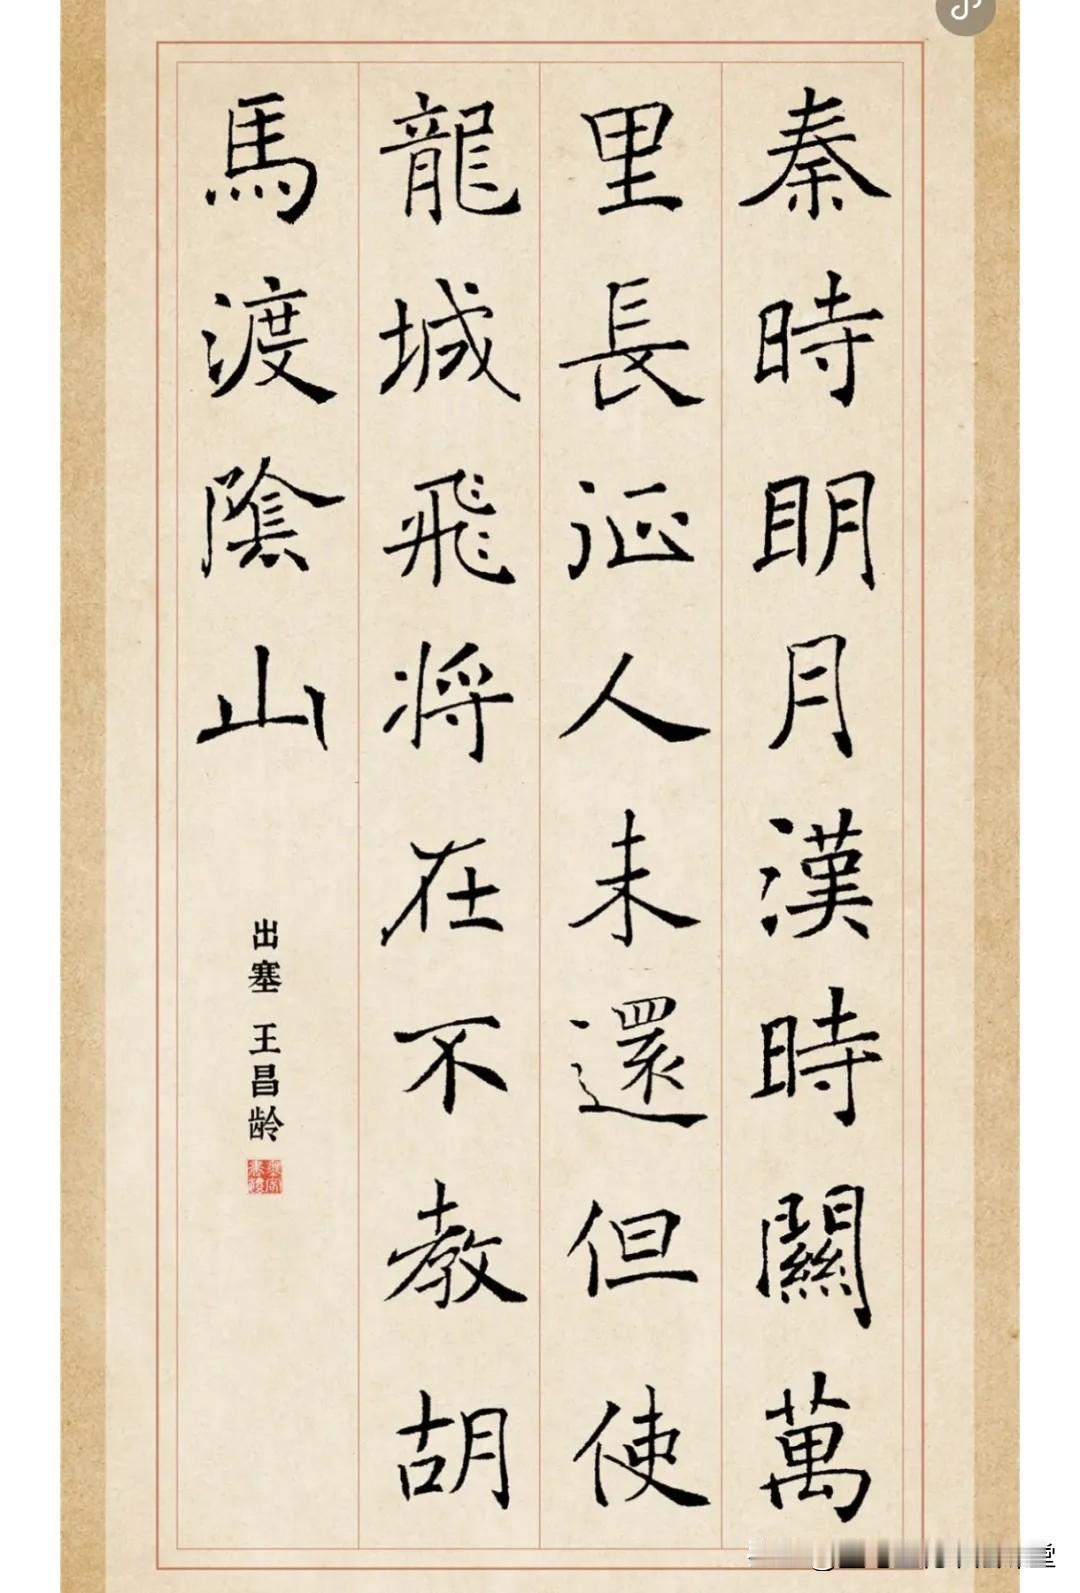 秦時明月漢時關萬
里長征人未還但使
龍城飛将在不教胡
馬渡陰山
出塞 王昌龄